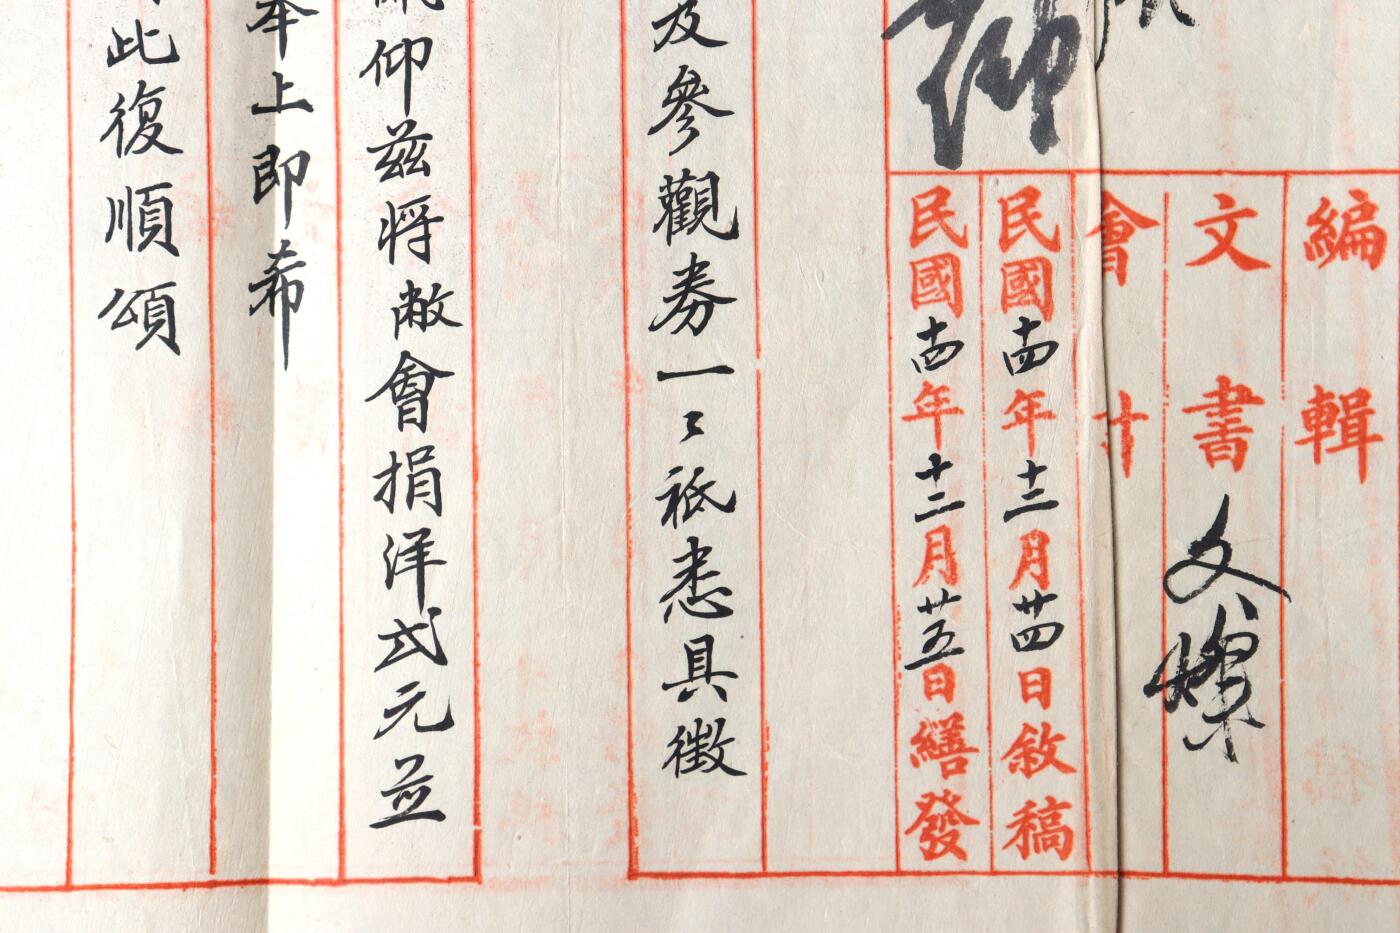 編輯
文書
會計
民國十四年十二月廿四日敘稿
民國十四年十二月廿五日繕發
及參觀券一〻祗悉具徵
仰兹將敝會捐洋弍元並
奉上即希
此復順頌